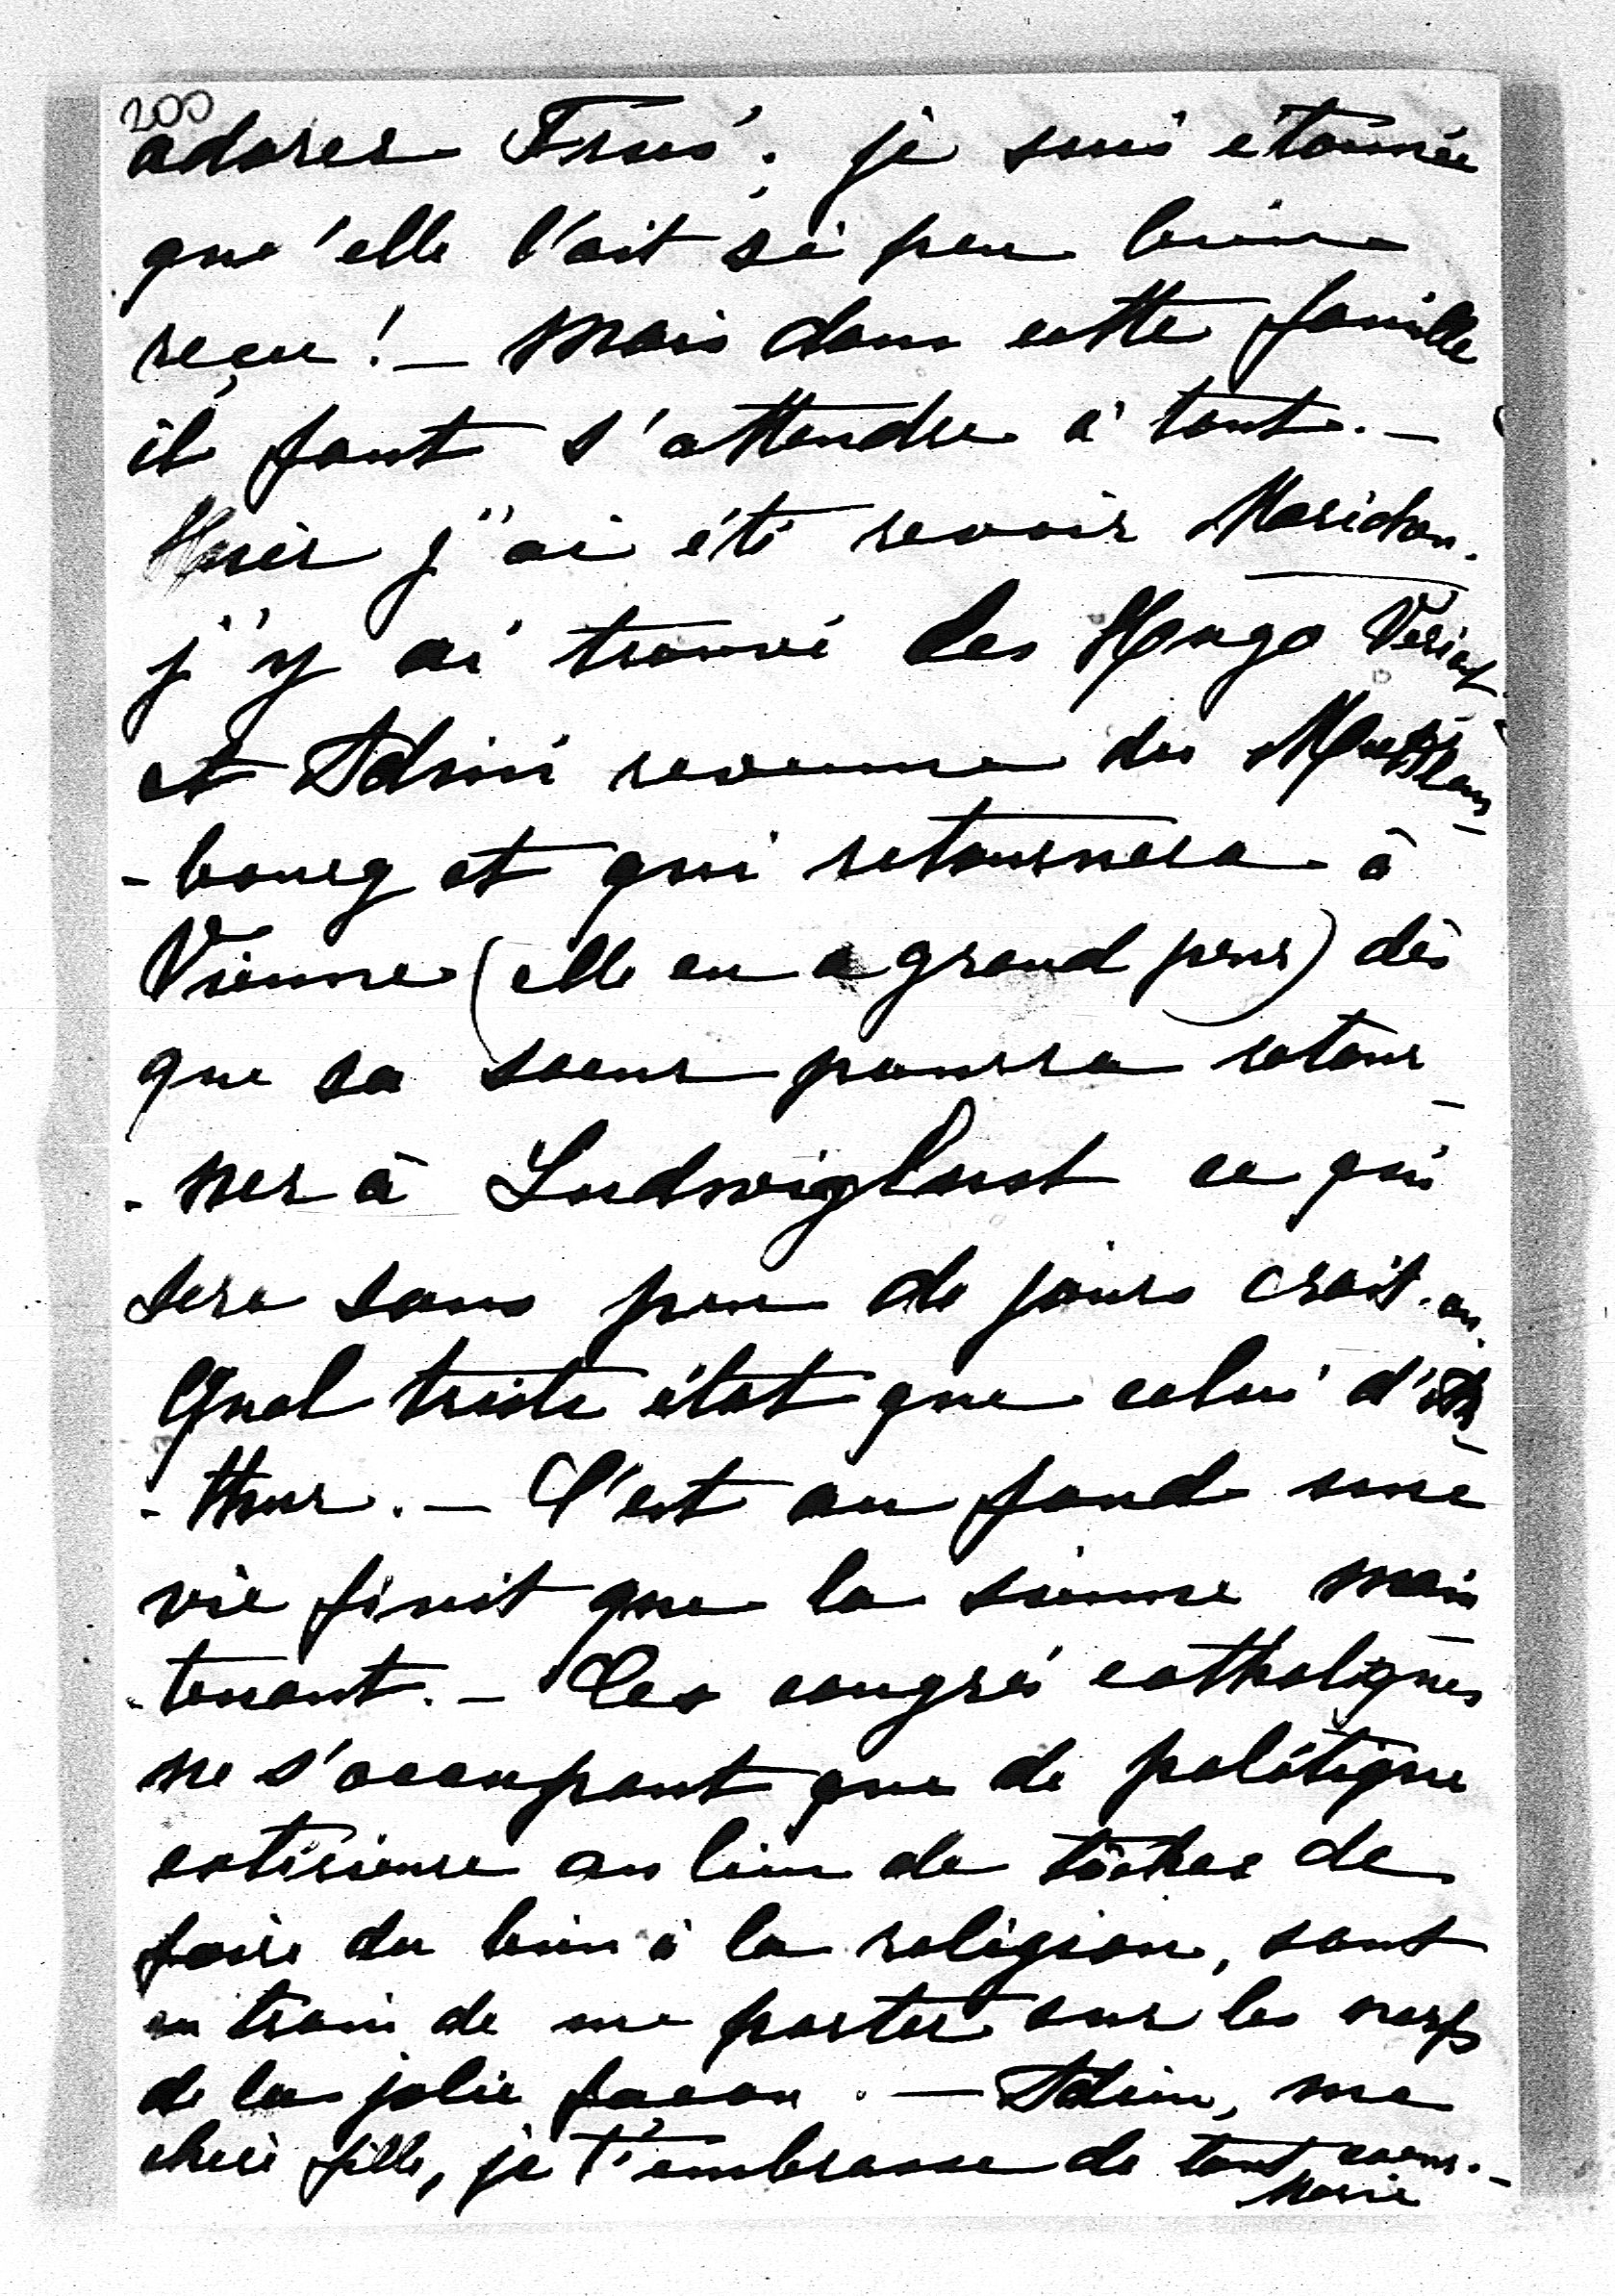 200
adorer Frus'; je suis étonnée
que'elle l'ait si peu bien
reçu! — Mais dans cette famille
il faut s'attendre à tout. —
Hier j'ai été revoir Marichon.
j'y ai trouvé les Hugo
et Adini revenue du Mecklem-
-bourg et qui retournera à
Vienne (elle en a grand peur) dès
que sa soeur pourra retour-
-ner à Ludwiglust ce qui
sera sans peu de jours croit-on.
Quel triste état que celui d'Ar-
-thur. — C'est au fond une
vie finit que la sienne main-
-tenant. — Ces congrés catholiques
ne s'occupant que de politique
extérieure au lieu de tâcher de
faire du bien à la religion, sont
en train de me porter sur les nerfs
de la jolie facon. — Adieu, ma
chère fille, je t'embrasse de tout coeur. —
Marie